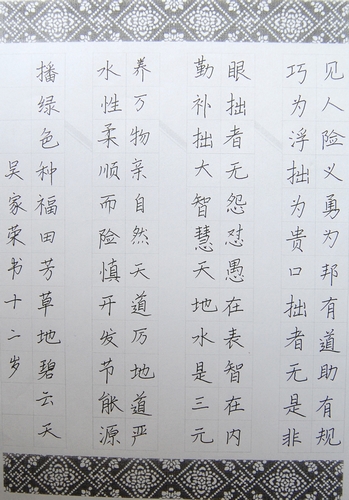 见人险义勇为邦有道助有规
巧为浮拙为贵口拙者无是非
眼拙者无怨怼愚在表智在内
勤补拙大智慧天地水是三元
养万物亲自然天道厉地道严
水性柔顺而险慎开发节能源
播绿色种福田芳草地碧云天
吴家荣书十二岁